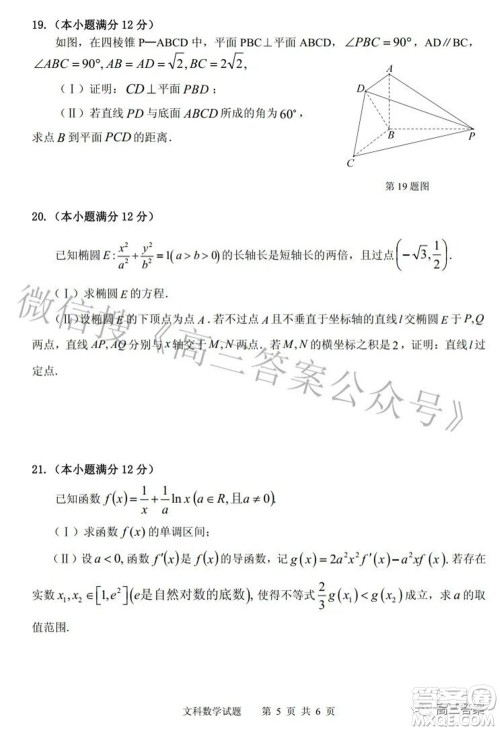 19.（本小题满分12分）
如图，在四棱锥P—ABCD中，平面PBC⊥平面ABCD，∠PBC=90°，AD∥BC，
∠ABC=90°,AB=AD=√2,BC=2√2,
（Ⅰ）证明：CD⊥平面PBD；
（Ⅱ）若直线PD与底面ABCD所成的角为60°，
求点B到平面PCD的距离．
A
D
B
P
C
第19题图
20.（本小题满分12分）
已知椭圆E:x²/a²+y²/b²=1(a>b>0)的长轴长是短轴长的两倍，且过点(−√3,1/2)．
（Ⅰ）求椭圆E的方程．
（Ⅱ）设椭圆E的下顶点为点A．若不过点A且不垂直于坐标轴的直线l交椭圆E于P,Q
两点，直线AP,AQ分别与x轴交于M,N两点．若M,N的横坐标之积是2，证明：直线l过
定点．
21.（本小题满分12分）
已知函数f(x)=1/x+1/a ln x(a∈R,且a≠0).
（Ⅰ）求函数f(x)的单调区间；
（Ⅱ）设a<0,函数f′(x)是f(x)的导函数，记g(x)=2a²x²f′(x)−a²xf(x).若存在
实数x₁,x₂∈[1,e²](e是自然对数的底数),使得不等式2/3 g(x₁)<g(x₂)成立，求a的取
值范围.
文科数学试题 第 5 页 共 6 页
微信搜《高三答案公众号》
高三答案